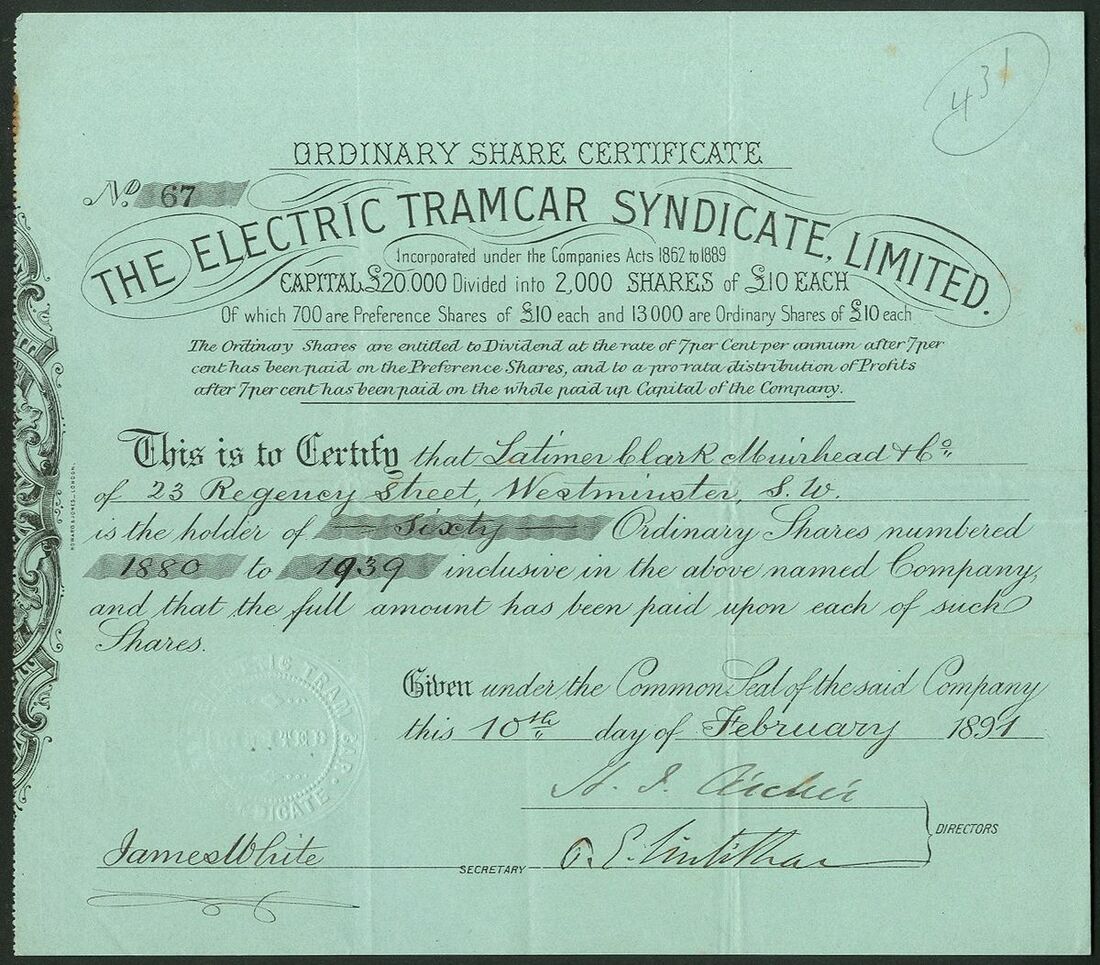 431
ORDINARY SHARE CERTIFICATE
No. 67
THE ELECTRIC TRAMCAR SYNDICATE, LIMITED.
Incorporated under the Companies Acts 1862 to 1889
CAPITAL £20.000 Divided into 2,000 SHARES of £10 EACH
Of which 700 are Preference Shares of £10 each and 13000 are Ordinary Shares of £10 each
The Ordinary Shares are entitled to Dividend at the rate of 7 per Cent per annum after 7 per
cent has been paid on the Preference Shares, and to a pro rata distribution of Profits
after 7 per cent has been paid on the whole paid up Capital of the Company.
This is to Certify that Latimer Clark Muirhead & Co.
of 23 Regency Street, Westminster, S.W.
is the holder of Sixty Ordinary Shares numbered
1880 to 1939 inclusive in the above named Company,
and that the full amount has been paid upon each of such
Shares.
Given under the Common Seal of the said Company
this 10th day of February 1891
TRAM CAR
LIMITED
H. J.
DIRECTORS
James White
SECRETARY